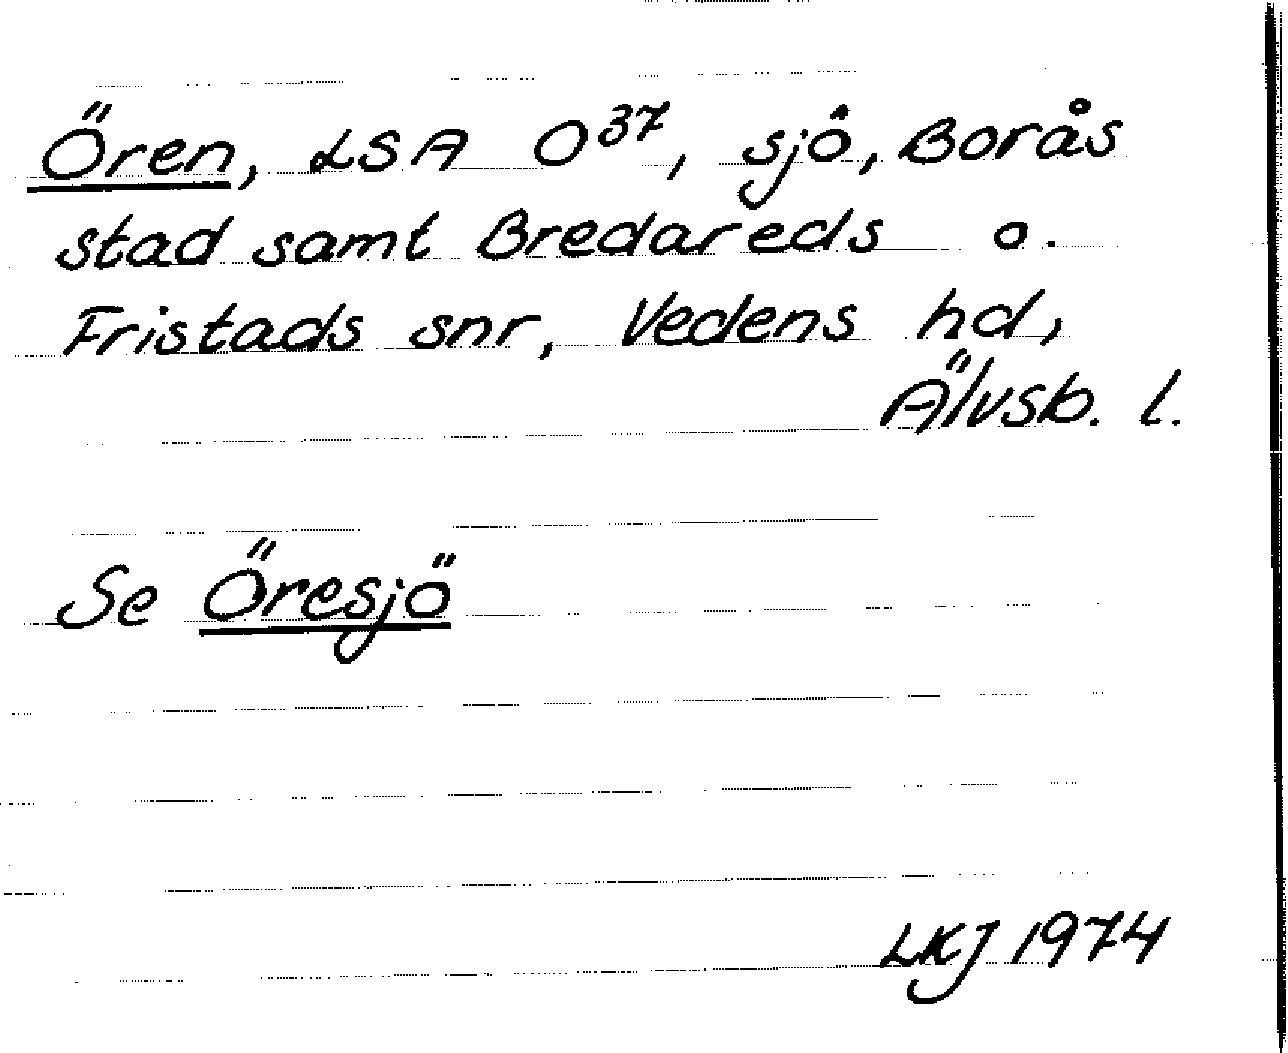 Ören, LSA O³⁷, sjö, Borås
stad samt Bredareds o.
Fristads snr, Vedens hd,
Älvsb. l.
Se Öresjö
LKJ 1974